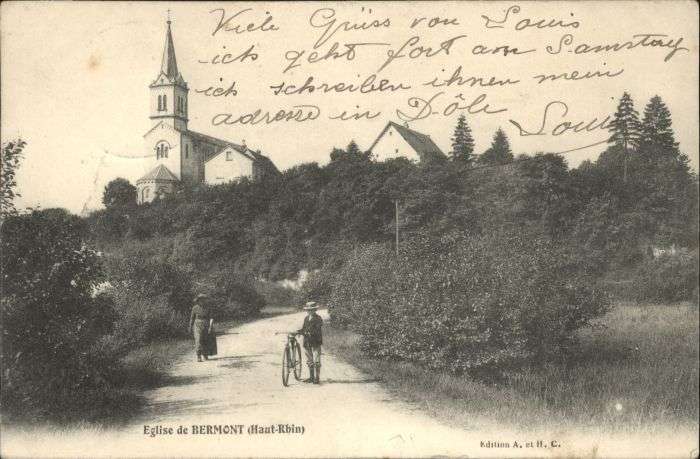 Viele Grüss von Louis
ich geht fort am Samstag
ich schreiben ihnen mein
adresse in Dôle
Louis
Eglise de BERMONT (Haut-Rhin)
Edition A. et H. C.